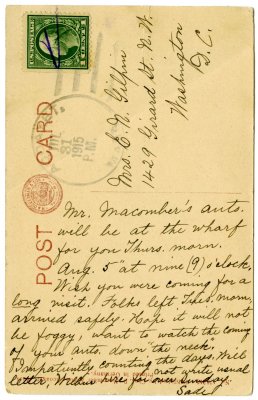 U.S. POSTAGE
JUL
31
1915
P.M.
POST CARD
Mrs. E. N. Gilpin
1429 Girard St. N.W.
Washington
D.C.
Mr. Macomber's auto.
will be at the wharf
for you Thurs. morn.
Aug. 5" at nine (9) o'clock.
Wish you were coming for a
long visit. Folks left Tues. morn,
arrived safely. Hope it will not
be foggy, want to watch the coming
of your auto. down "the neck".
Impatiently counting the days. Will
not write usual
letter, Wilbur here for over Sunday.